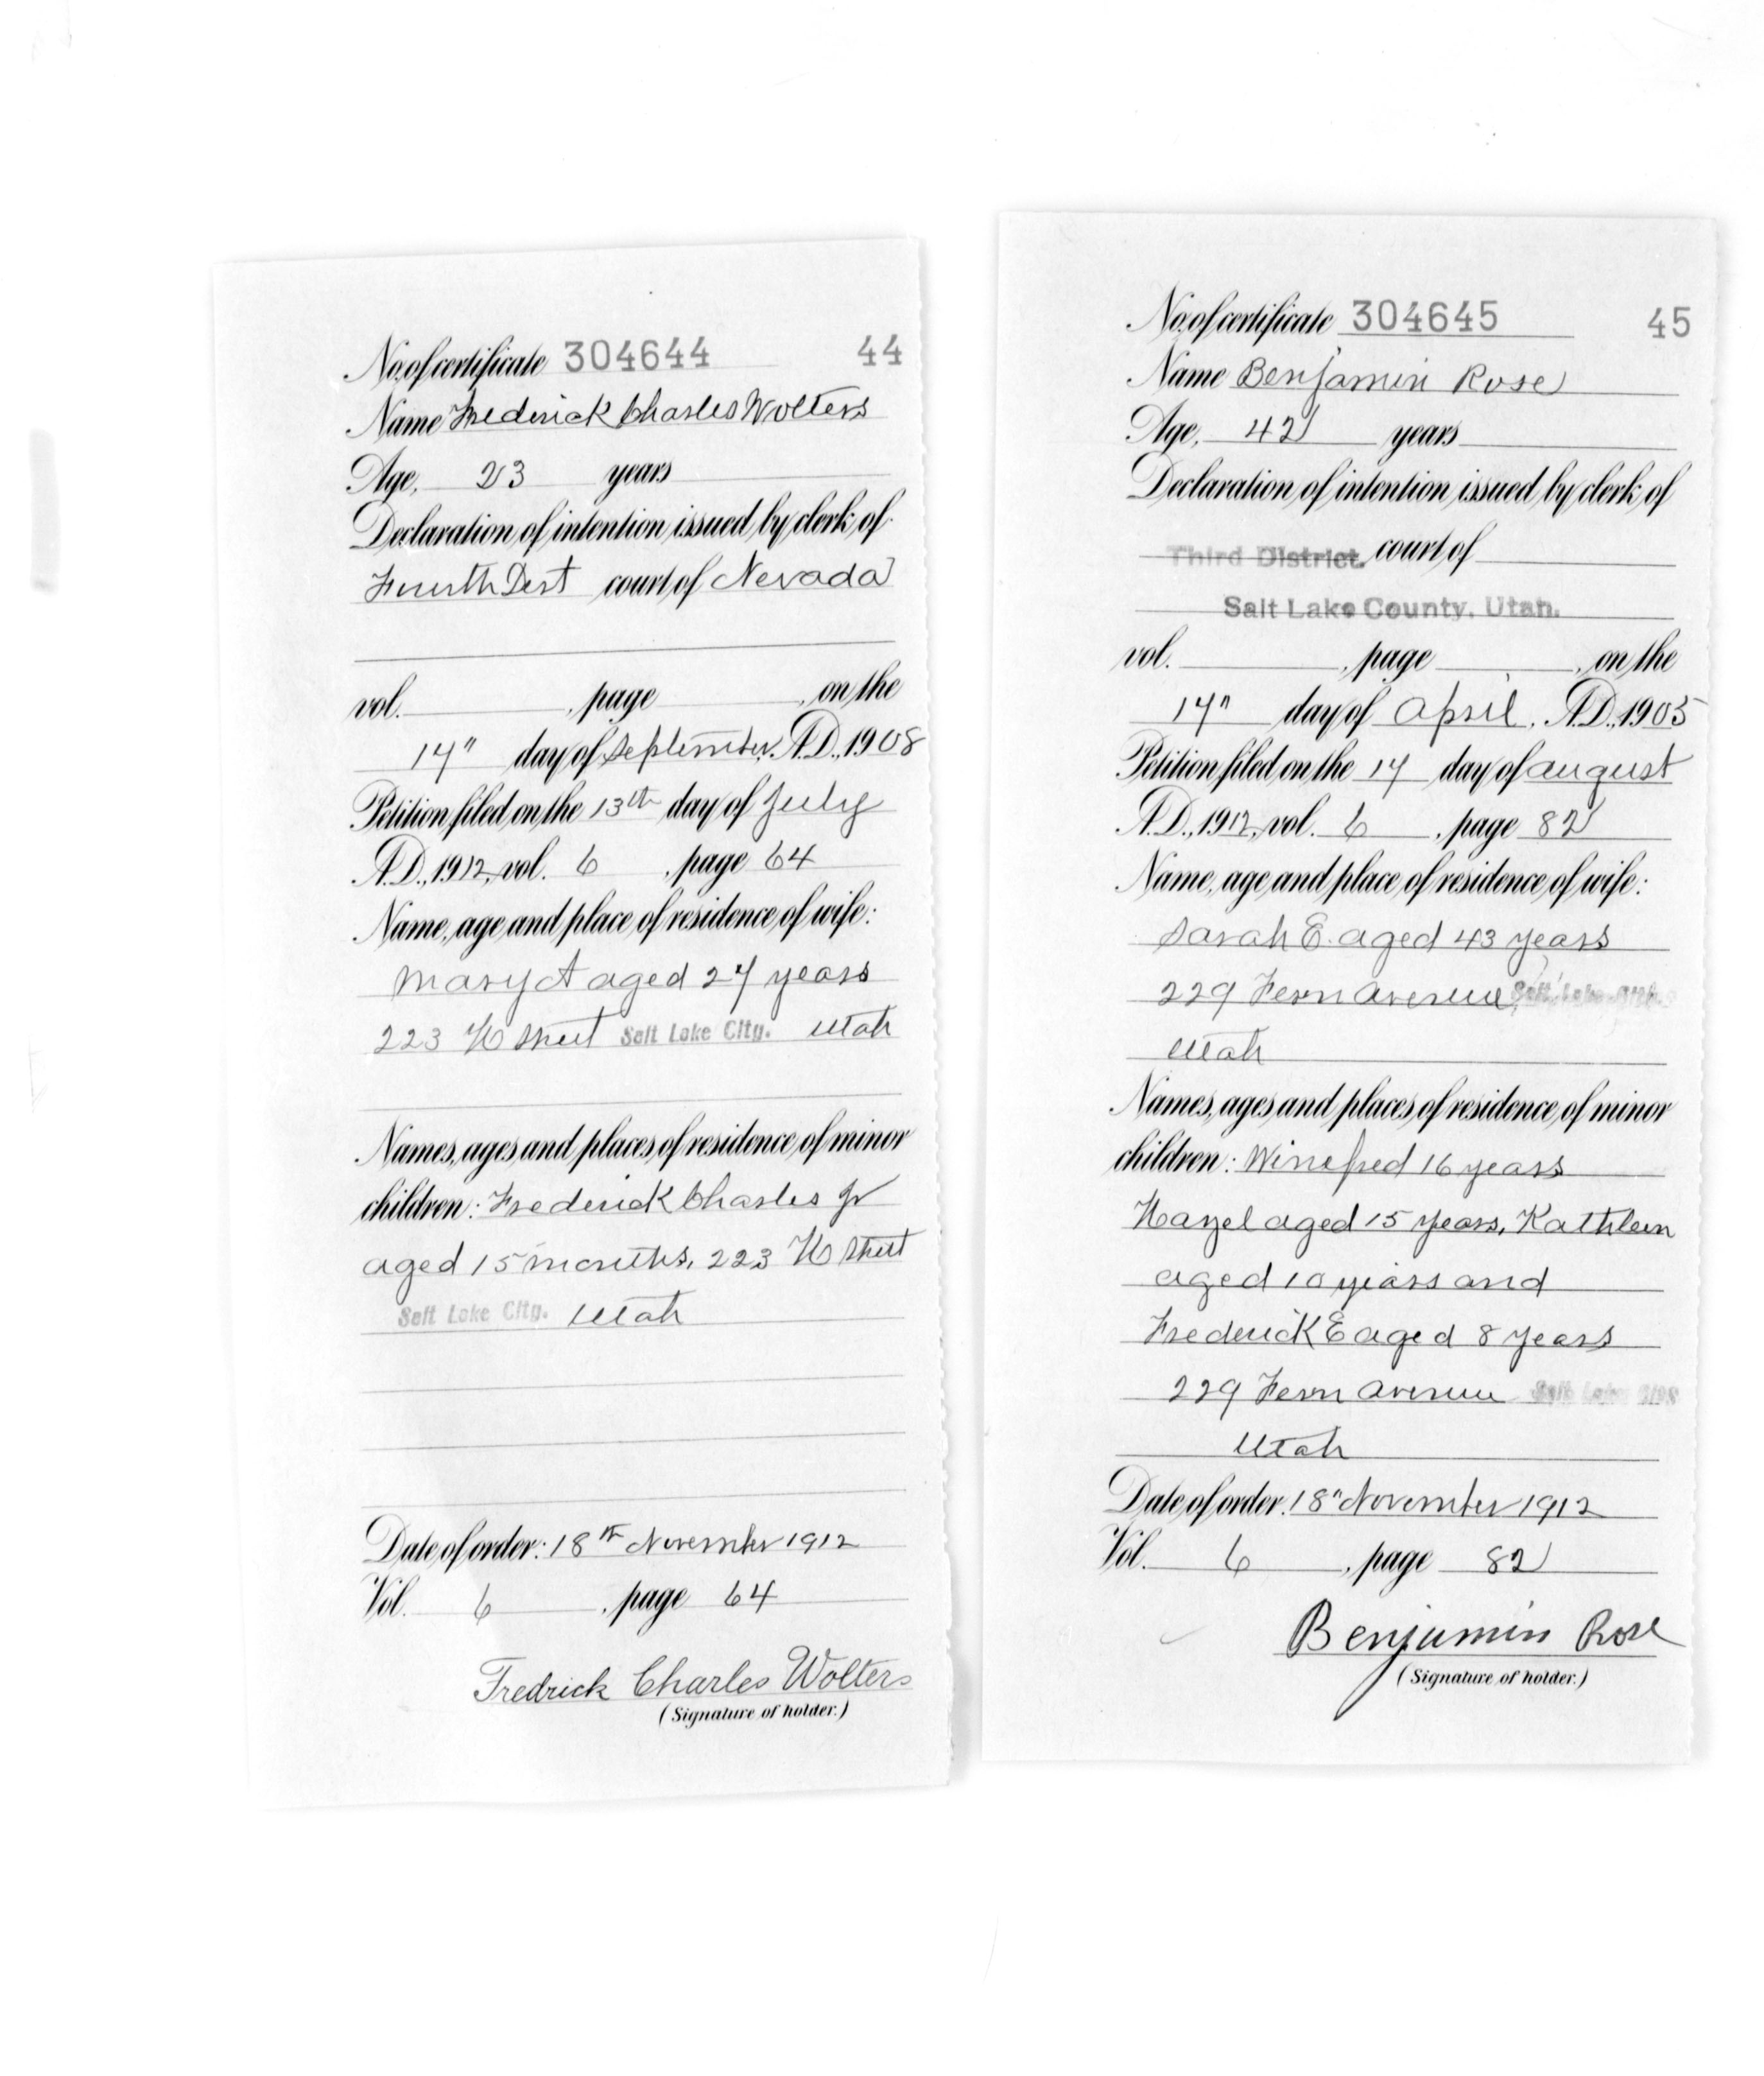 No. of certificate 304644 44
Name Frederick Charles Wolters
Age, 23 years
Declaration of intention issued by clerk of
Fourth Dist court of Nevada
vol. , page , on the
14" day of September, A.D., 1908
Petition filed on the 13th day of July
A.D., 1912, vol. 6 , page 64
Name, age and place of residence of wife:
Mary A aged 24 years
223 H Street Salt Lake City. Utah
Names, ages and places of residence of minor
children: Frederick Charles Jr
aged 15 months, 223 H Street
Salt Lake City. Utah
Date of order: 18th November 1912
Vol. 6 , page 64
Fredrick Charles Wolters
(Signature of holder.)
No. of certificate 304645 45
Name Benjamin Rose
Age, 42 years
Declaration of intention issued by clerk of
Third District. court of
Salt Lake County, Utah.
vol. , page , on the
14" day of April, A.D., 1905
Petition filed on the 14 day of August
A.D., 1912, vol. 6 , page 82
Name, age and place of residence of wife:
Sarah E. aged 43 years
229 Fern Avenue, Salt Lake City.
Utah
Names, ages and places of residence of minor
children: Winefred 16 years
Hazel aged 15 years, Kathleen
aged 10 years and
Frederick E aged 8 years
229 Fern Avenue Salt Lake City
Utah
Date of order: 18" November 1912
Vol. 6 , page 82
Benjamin Rose
(Signature of holder.)